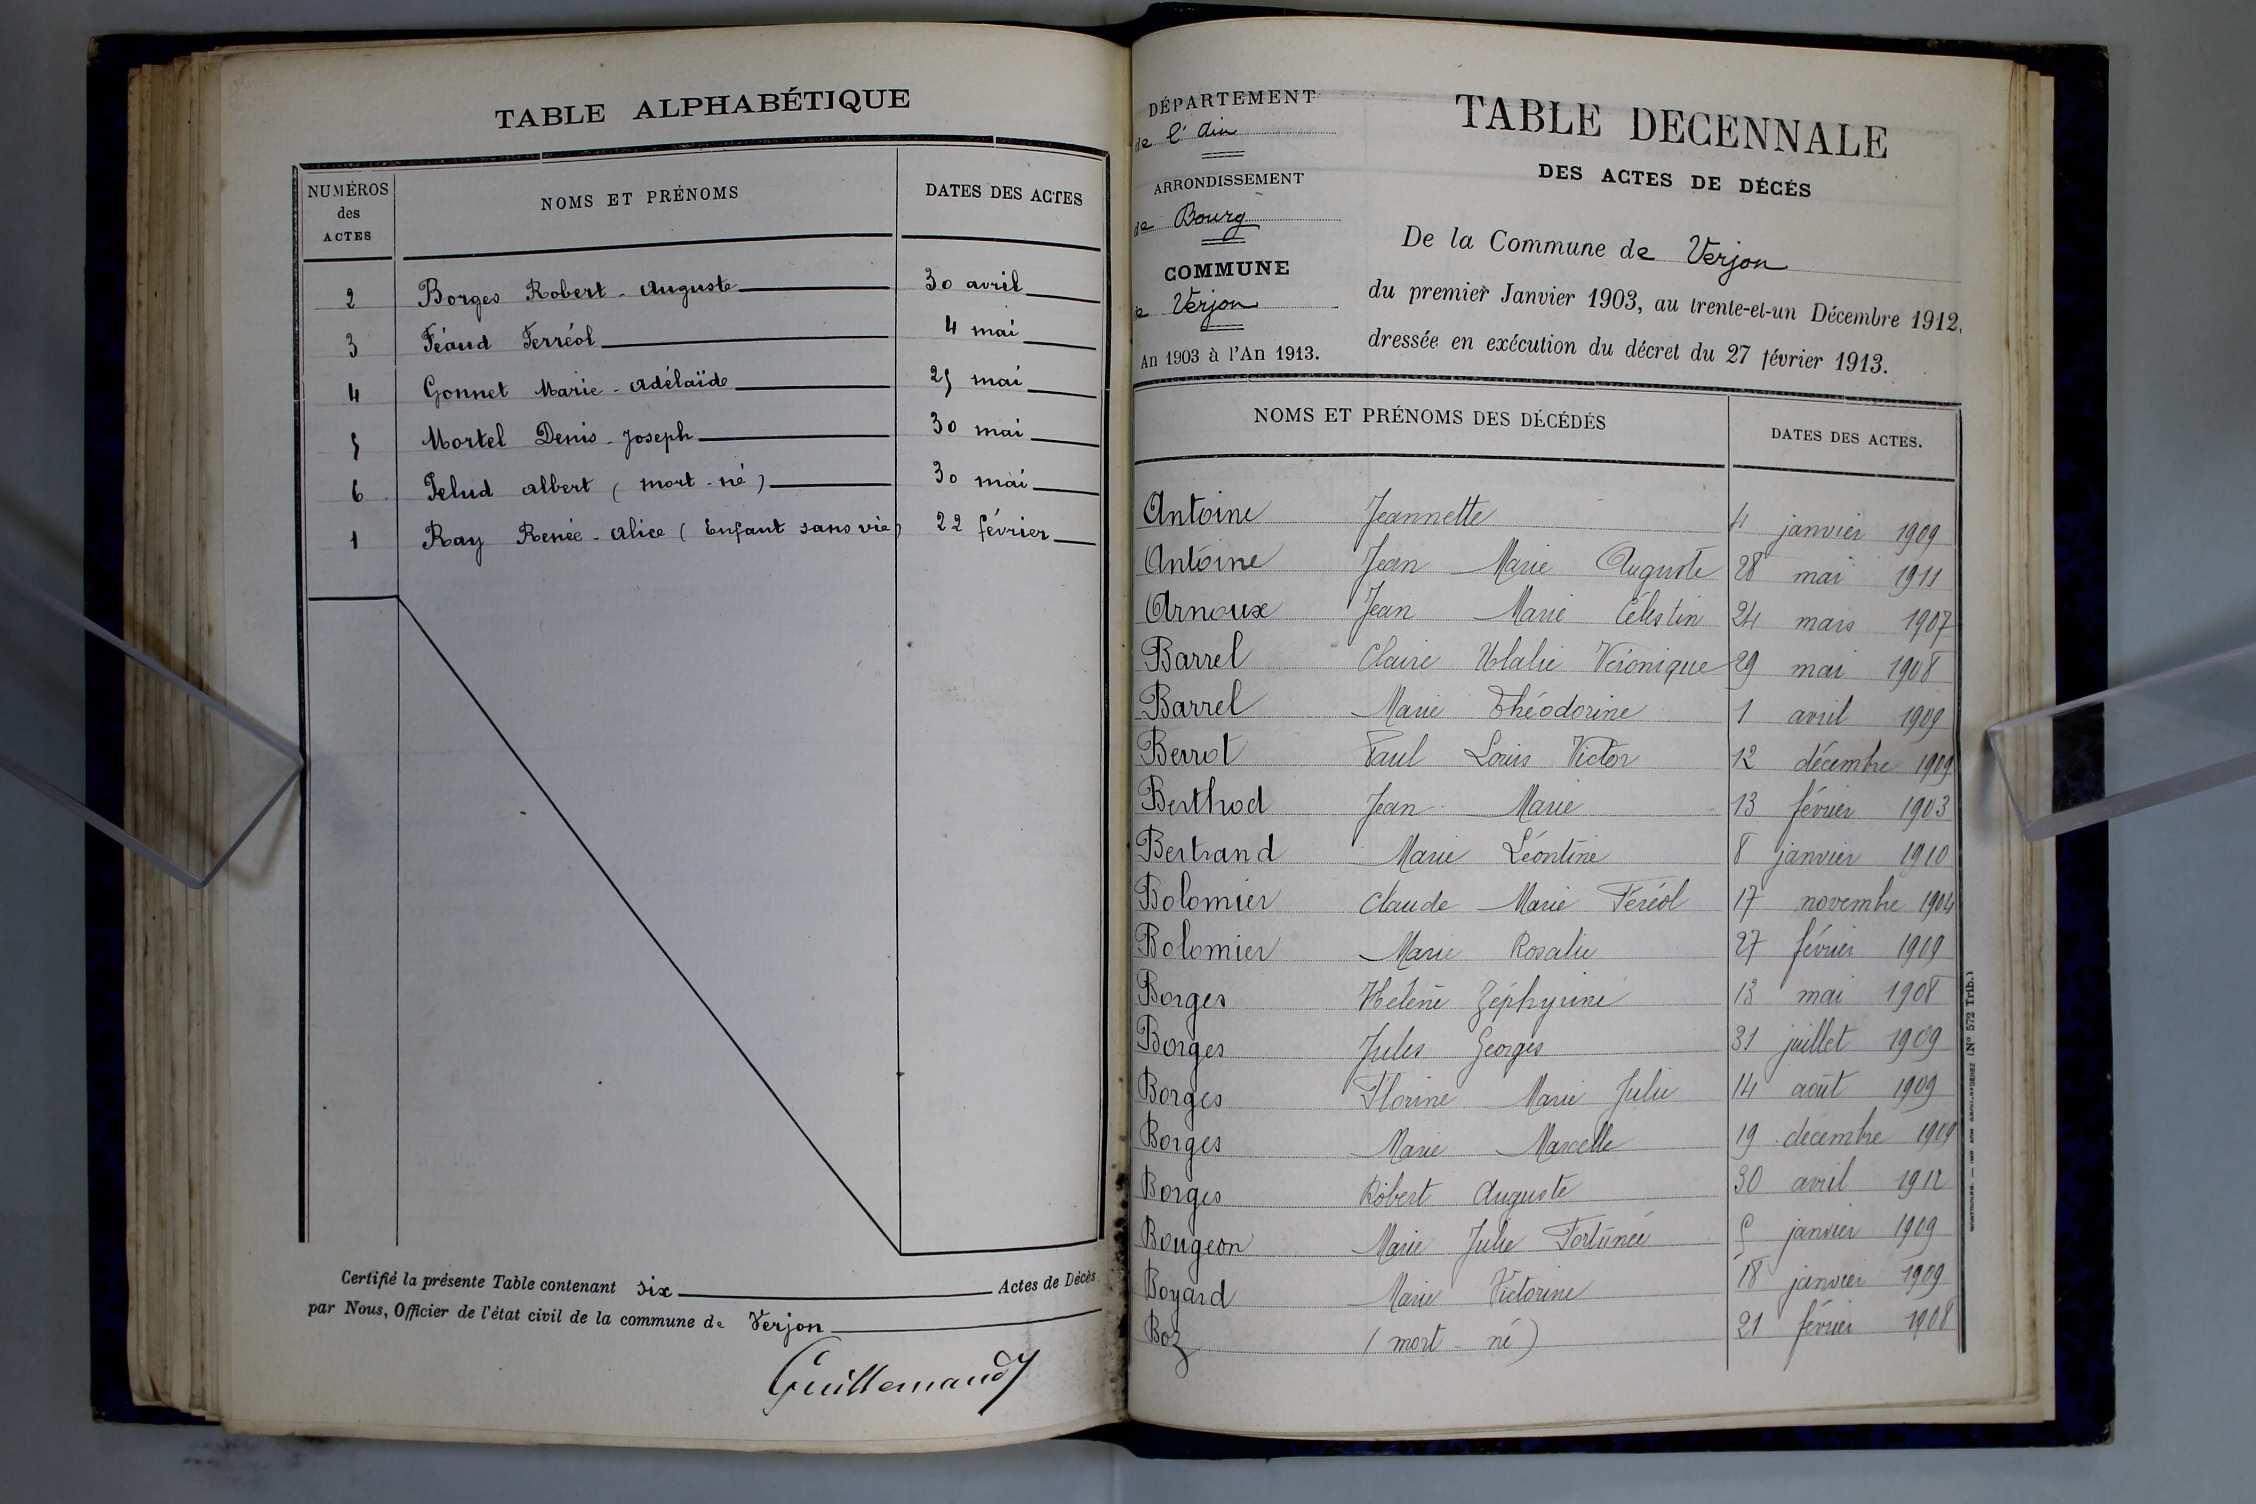 TABLE ALPHABÉTIQUE
NUMÉROS des ACTES
NOMS ET PRÉNOMS
DATES DES ACTES
2 Borges Robert - Auguste 30 avril
3 Féaud Ferréol 4 mai
4 Gonnet Marie - Adélaïde 25 mai
5 Mortel Denis - Joseph 30 mai
6 Pelud Albert (mort - né) 30 mai
1 Ray Renée - Alice (Enfant sans vie) 22 février
Certifié la présente Table contenant six Actes de Décès
par Nous, Officier de l'état civil de la commune de Verjon
Guillemaud
DÉPARTEMENT
de l'Ain
ARRONDISSEMENT
de Bourg
COMMUNE
de Verjon
An 1903 à l'An 1913.
TABLE DECENNALE
DES ACTES DE DÉCÉS
De la Commune de Verjon
du premier Janvier 1903, au trente-et-un Décembre 1912,
dressée en exécution du décret du 27 février 1913.
NOMS ET PRÉNOMS DES DÉCÉDÉS
DATES DES ACTES.
Antoine Jeannette 4 janvier 1909
Antoine Jean Marie Auguste 28 mai 1911
Arnoux Jean Marie Célestin 24 mars 1907
Barrel Claire Ulalie Véronique 29 mai 1908
Barrel Marie Théodorine 1 avril 1909
Berrot Paul Louis Victor 12 décembre 1909
Berthod Jean Marie 13 février 1903
Bertrand Marie Léontine 8 janvier 1910
Bolomier Claude Marie Féréol 17 novembre 1904
Bolomier Marie Rosalie 27 février 1909
Borges Hélène Zéphyrine 13 mai 1908
Borges Jules Georges 31 juillet 1909
Borges Florine Marie Julie 14 août 1909
Borges Marie Marcelle 19 decembre 1909
Borges Robert Auguste 30 avril 1912
Bougeon Marie Julie Fortunée 5 janvier 1909
Boyard Marie Victorine 18 janvier 1909
Boz (mort - né) 21 février 1908
(N° 572 Trib.)